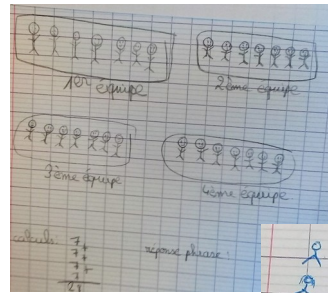 1er équipe
2ème équipe
3ème équipe
4ème équipe
calculs: 7+
7+
7+
7
28
réponse phrase: